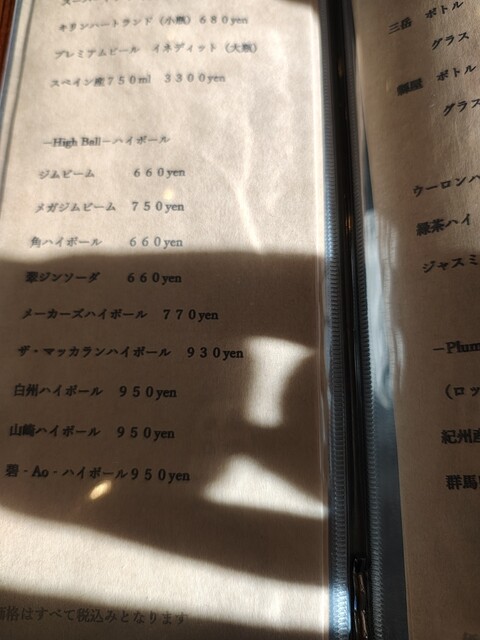 キリンハートランド（小瓶）６８０yen
プレミアムビール　イネディット（大瓶）
スペイン産７５０ml　３３００yen
－High Ball－ハイボール
ジムビーム　６６０yen
メガジムビーム　７５０yen
角ハイボール　６６０yen
翠ジンソーダ　６６０yen
メーカーズハイボール　７７０yen
ザ・マッカランハイボール　９３０yen
白州ハイボール　９５０yen
山崎ハイボール　９５０yen
碧‐Ao‐ハイボール９５０yen
価格はすべて税込みとなります
三岳　ボトル
グラス
ボトル
グラス
ウーロンハ
緑茶ハイ
ジャスミ
－Plum
（ロッ
紀州産
群馬